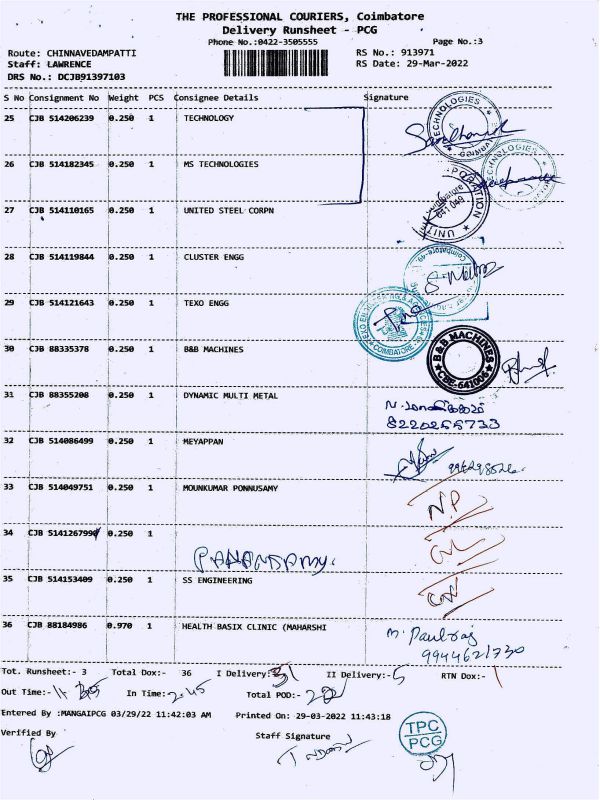 THE PROFESSIONAL COURIERS, Coimbatore
Delivery Runsheet - PCG
Phone No.:0422-3505555 Page No.:3
Route: CHINNAVEDAMPATTI RS No.: 913971
Staff: LAWRENCE RS Date: 29-Mar-2022
DRS No.: DCJB91397103
S No Consignment No Weight PCS Consignee Details Signature
25 CJB 514206239 0.250 1 TECHNOLOGY
TECHNOLOGIES
26 CJB 514182345 0.250 1 MS TECHNOLOGIES
TECHNOLOGIES
27 CJB 514110165 0.250 1 UNITED STEEL CORPN
641 049
28 CJB 514119844 0.250 1 CLUSTER ENGG
29 CJB 514121643 0.250 1 TEXO ENGG
COIMBATORE
30 CJB 88335378 0.250 1 B&B MACHINES
B&B MACHINES
CBE-641006
31 CJB 88355208 0.250 1 DYNAMIC MULTI METAL
8220266733
32 CJB 514086499 0.250 1 MEYAPPAN
33 CJB 514049751 0.250 1 MOUNKUMAR PONNUSAMY
N.P
34 CJB 514126799 0.250 1
35 CJB 514153409 0.250 1 SS ENGINEERING
36 CJB 88184986 0.970 1 HEALTH BASIX CLINIC (MAHARSHI
M. Paulraj
9944621730
Tot. Runsheet:- 3 Total Dox:- 36 I Delivery:- 31 II Delivery:- 5 RTN Dox:- 1
Out Time:- In Time:- 2.45 Total POD:-
Entered By :MANGAIPCG 03/29/22 11:42:03 AM Printed On: 29-03-2022 11:43:18
Verified By Staff Signature
TPC
PCG